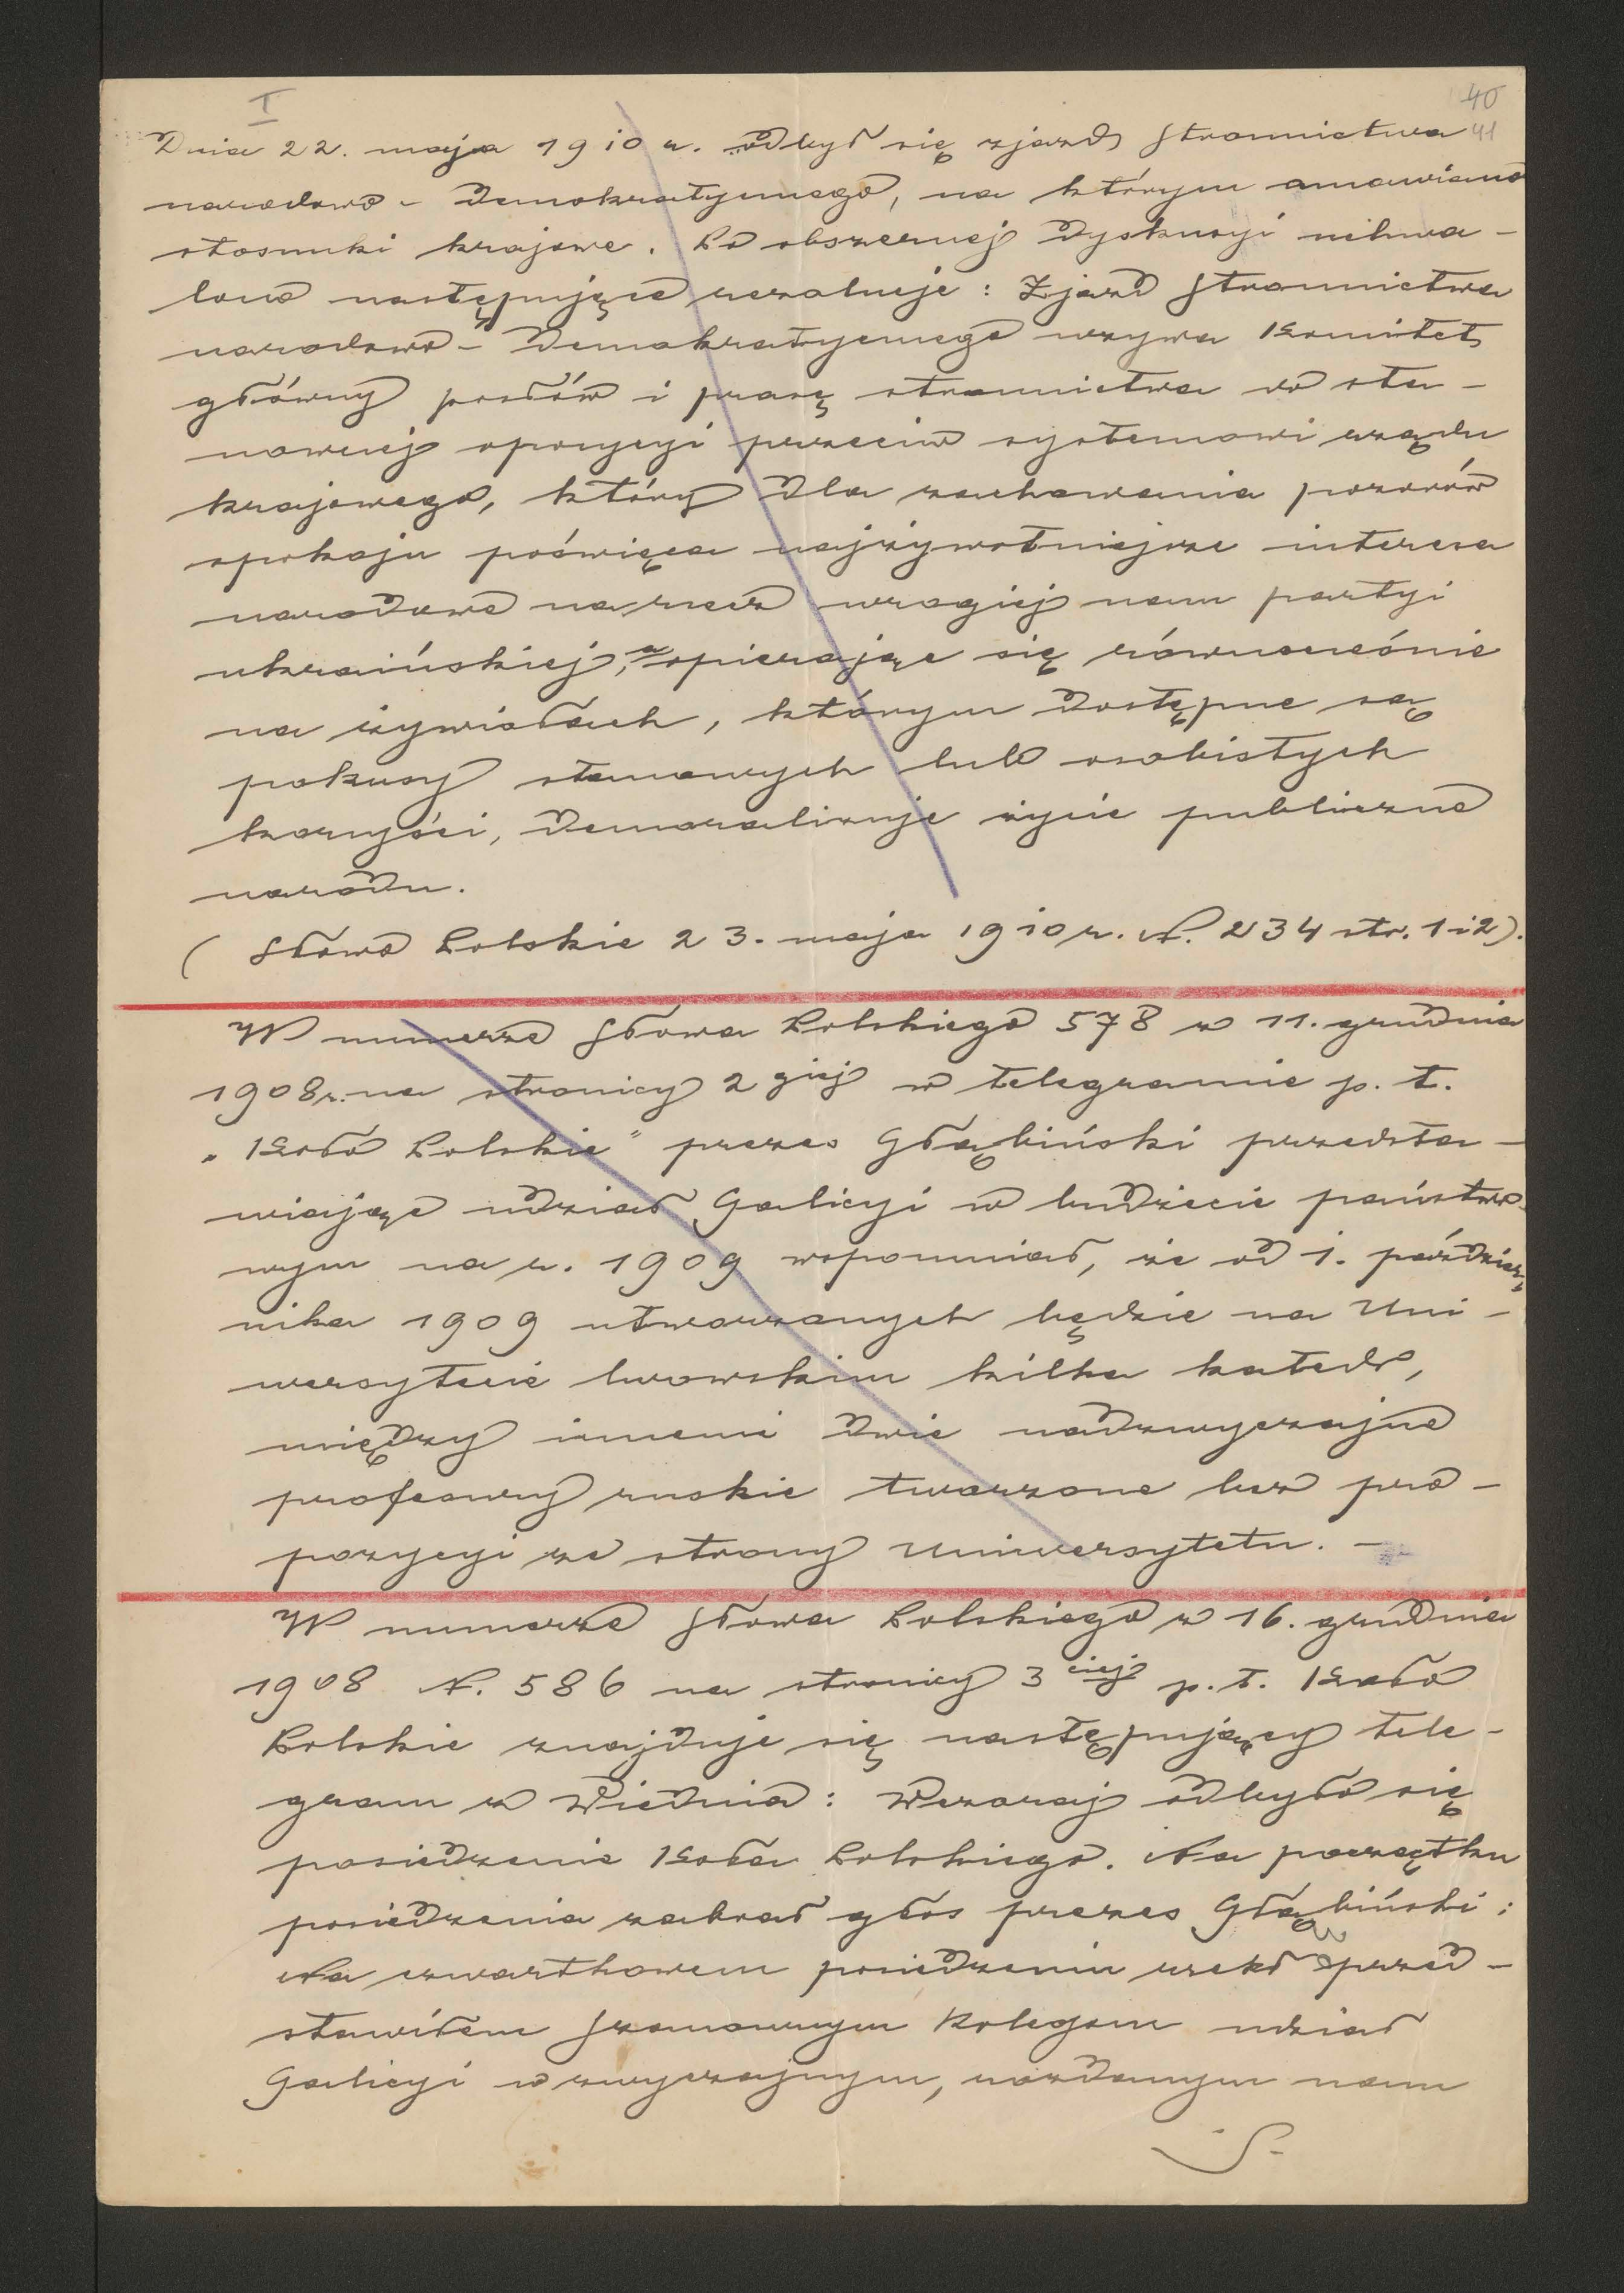 I
40
41
Dnia 22. maja 1910 r. odbył się zjazd Stronnictwa
narodowo - demokratycznego, na którym omawiano
stosunki krajowe. Po obszernej dyskusyi uchwa-
lono następujące rezolucje: Zjazd Stronnictwa
narodowo - demokratycznego wzywa Komitet
główny posłów i prasę stronnictwa do sta-
nowczej opozycyi przeciw systemowi rządu
krajowego, który dla zachowania pozorów
spokoju poświęca najżywotniejsze interesa
narodowe na rzecz wrogiej nam partyi
ukraińskiej, a opierając się równocześnie
na żywiołach, którym dostępne są
pokusy stanowych lub osobistych
korzyści, demoralizuje życie publiczne
narodu.
(Słowo Polskie 23. maja 1910 r. N. 234 str. 1 i 2).
W numerze Słowa Polskiego 578 z 11. grudnia
1908 r. na stronicy 2 giej w telegramie p. t.
„Koło Polskie" prezes Głąbiński przedsta-
wiając udział Galicyi w budżecie państwo-
wym na r. 1909 wspomniał, że od 1. paździer-
nika 1909 utworzonych będzie na Uni-
wersytecie lwowskim kilka katedr,
między innemi dwie nadzwyczajne
profesury ruskie tworzone bez pro-
pozycyi ze strony Uniwersytetu. -
W numerze Słowa Polskiego z 16. grudnia
1908 N. 586 na stronicy 3 ciej p. t. Koło
Polskie znajduje się następujący tele-
gram z Wiednia: Wczoraj odbyło się
posiedzenie Koła Polskiego. Na początku
posiedzenia zabrał głos prezes Głąbiński:
Na czwartkowem posiedzeniu rzekł przed-
stawiłem Szanownym Kolegom udział
Galicyi w zwyczajnym, rozdanym nam